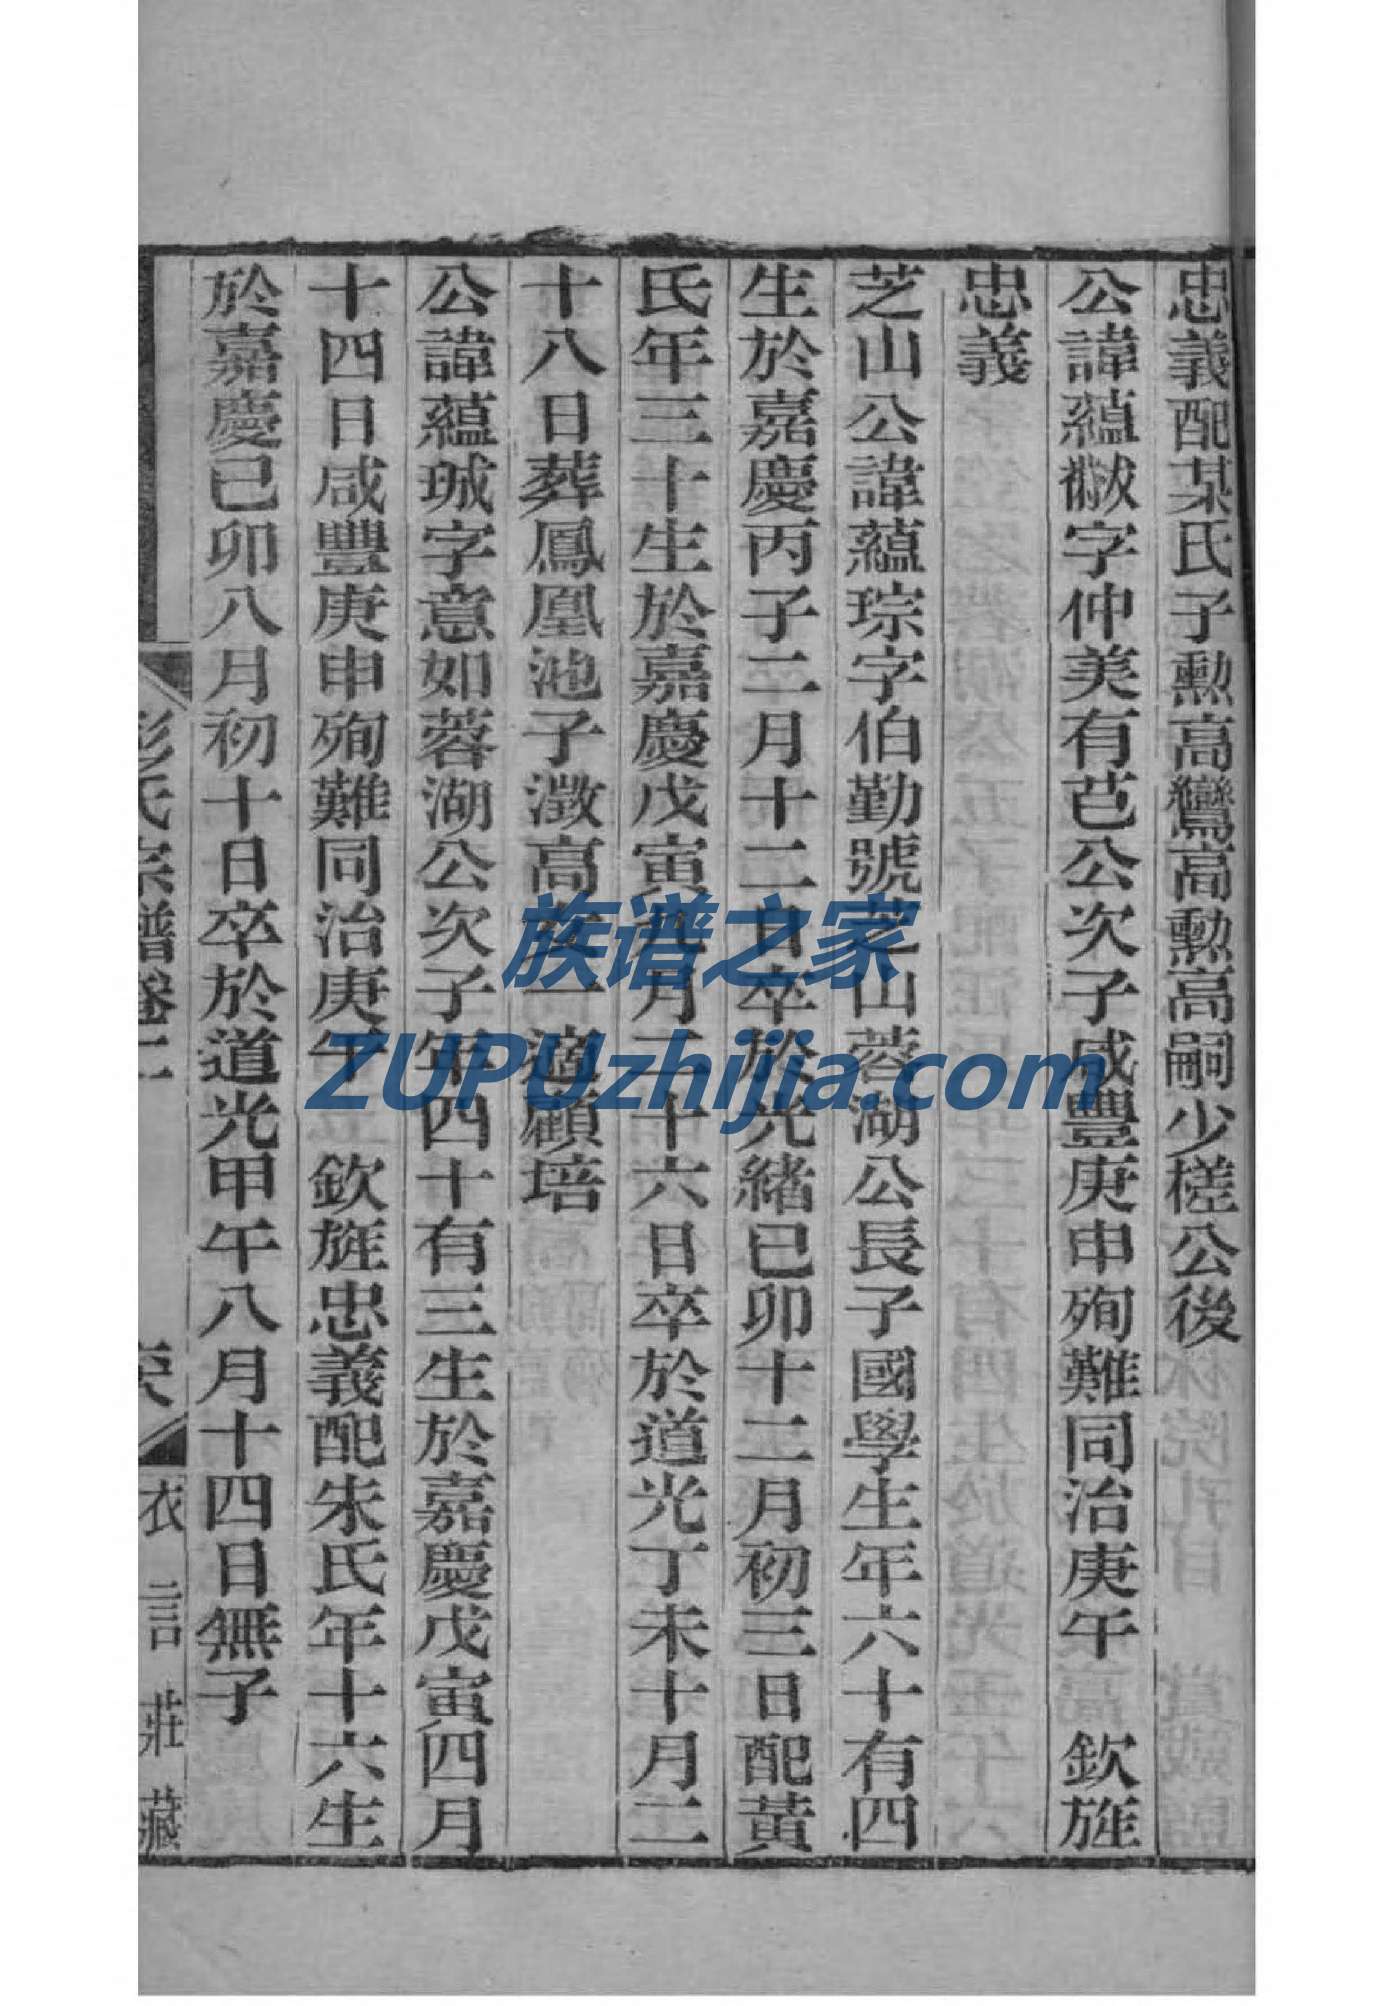 忠義配某氏子勲高鸞高勲高嗣少槎公後
公諱蕴黻字仲美有芑公次子咸豐庚申殉難同治庚午　欽旌
忠義
芝山公諱蕴琮字伯勤號芝山蓉湖公長子國學生年六十有四
生於嘉慶丙子二月十二日卒於光緒己卯十二月初三日配黃
氏年三十生於嘉慶戊寅九月二十六日卒於道光丁未十月二
十八日葬鳳凰池子澂高女一適顧培
公諱蕴珹字意如蓉湖公次子年四十有三生於嘉慶戊寅四月
十四日咸豐庚申殉難同治庚午　欽旌忠義配朱氏年十六生
於嘉慶己卯八月初十日卒於道光甲午八月十四日無子
彭氏宗譜卷二
衣言莊藏
族谱之家
ZUPUzhijia.com